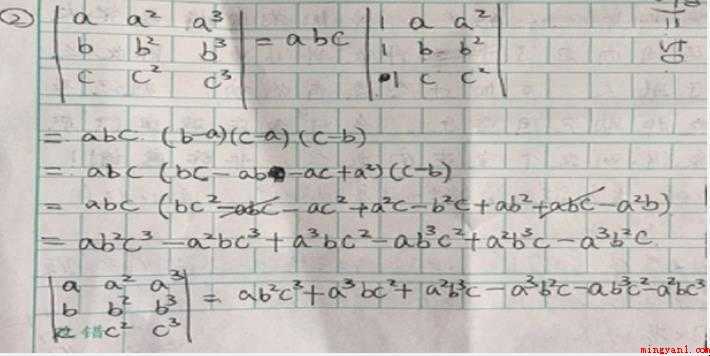 ② | a a² a³ | = abc | 1 a a² |
| b b² b³ | | 1 b b² |
| c c² c³ | | 1 c c² |
= abc (b-a)(c-a)(c-b)
= abc (bc - ab - ac + a²)(c-b)
= abc (bc² - abc - ac² + a²c - b²c + ab² + abc - a²b)
= ab²c³ - a²bc³ + a³bc² - ab³c² + a²b³c - a³b²c
| a a² a³ |
| b b² b³ | = ab²c³ + a³bc² + a²b³c - a³b²c - ab³c² - a²bc³
| 错 c² c³ |
mingyan1.com